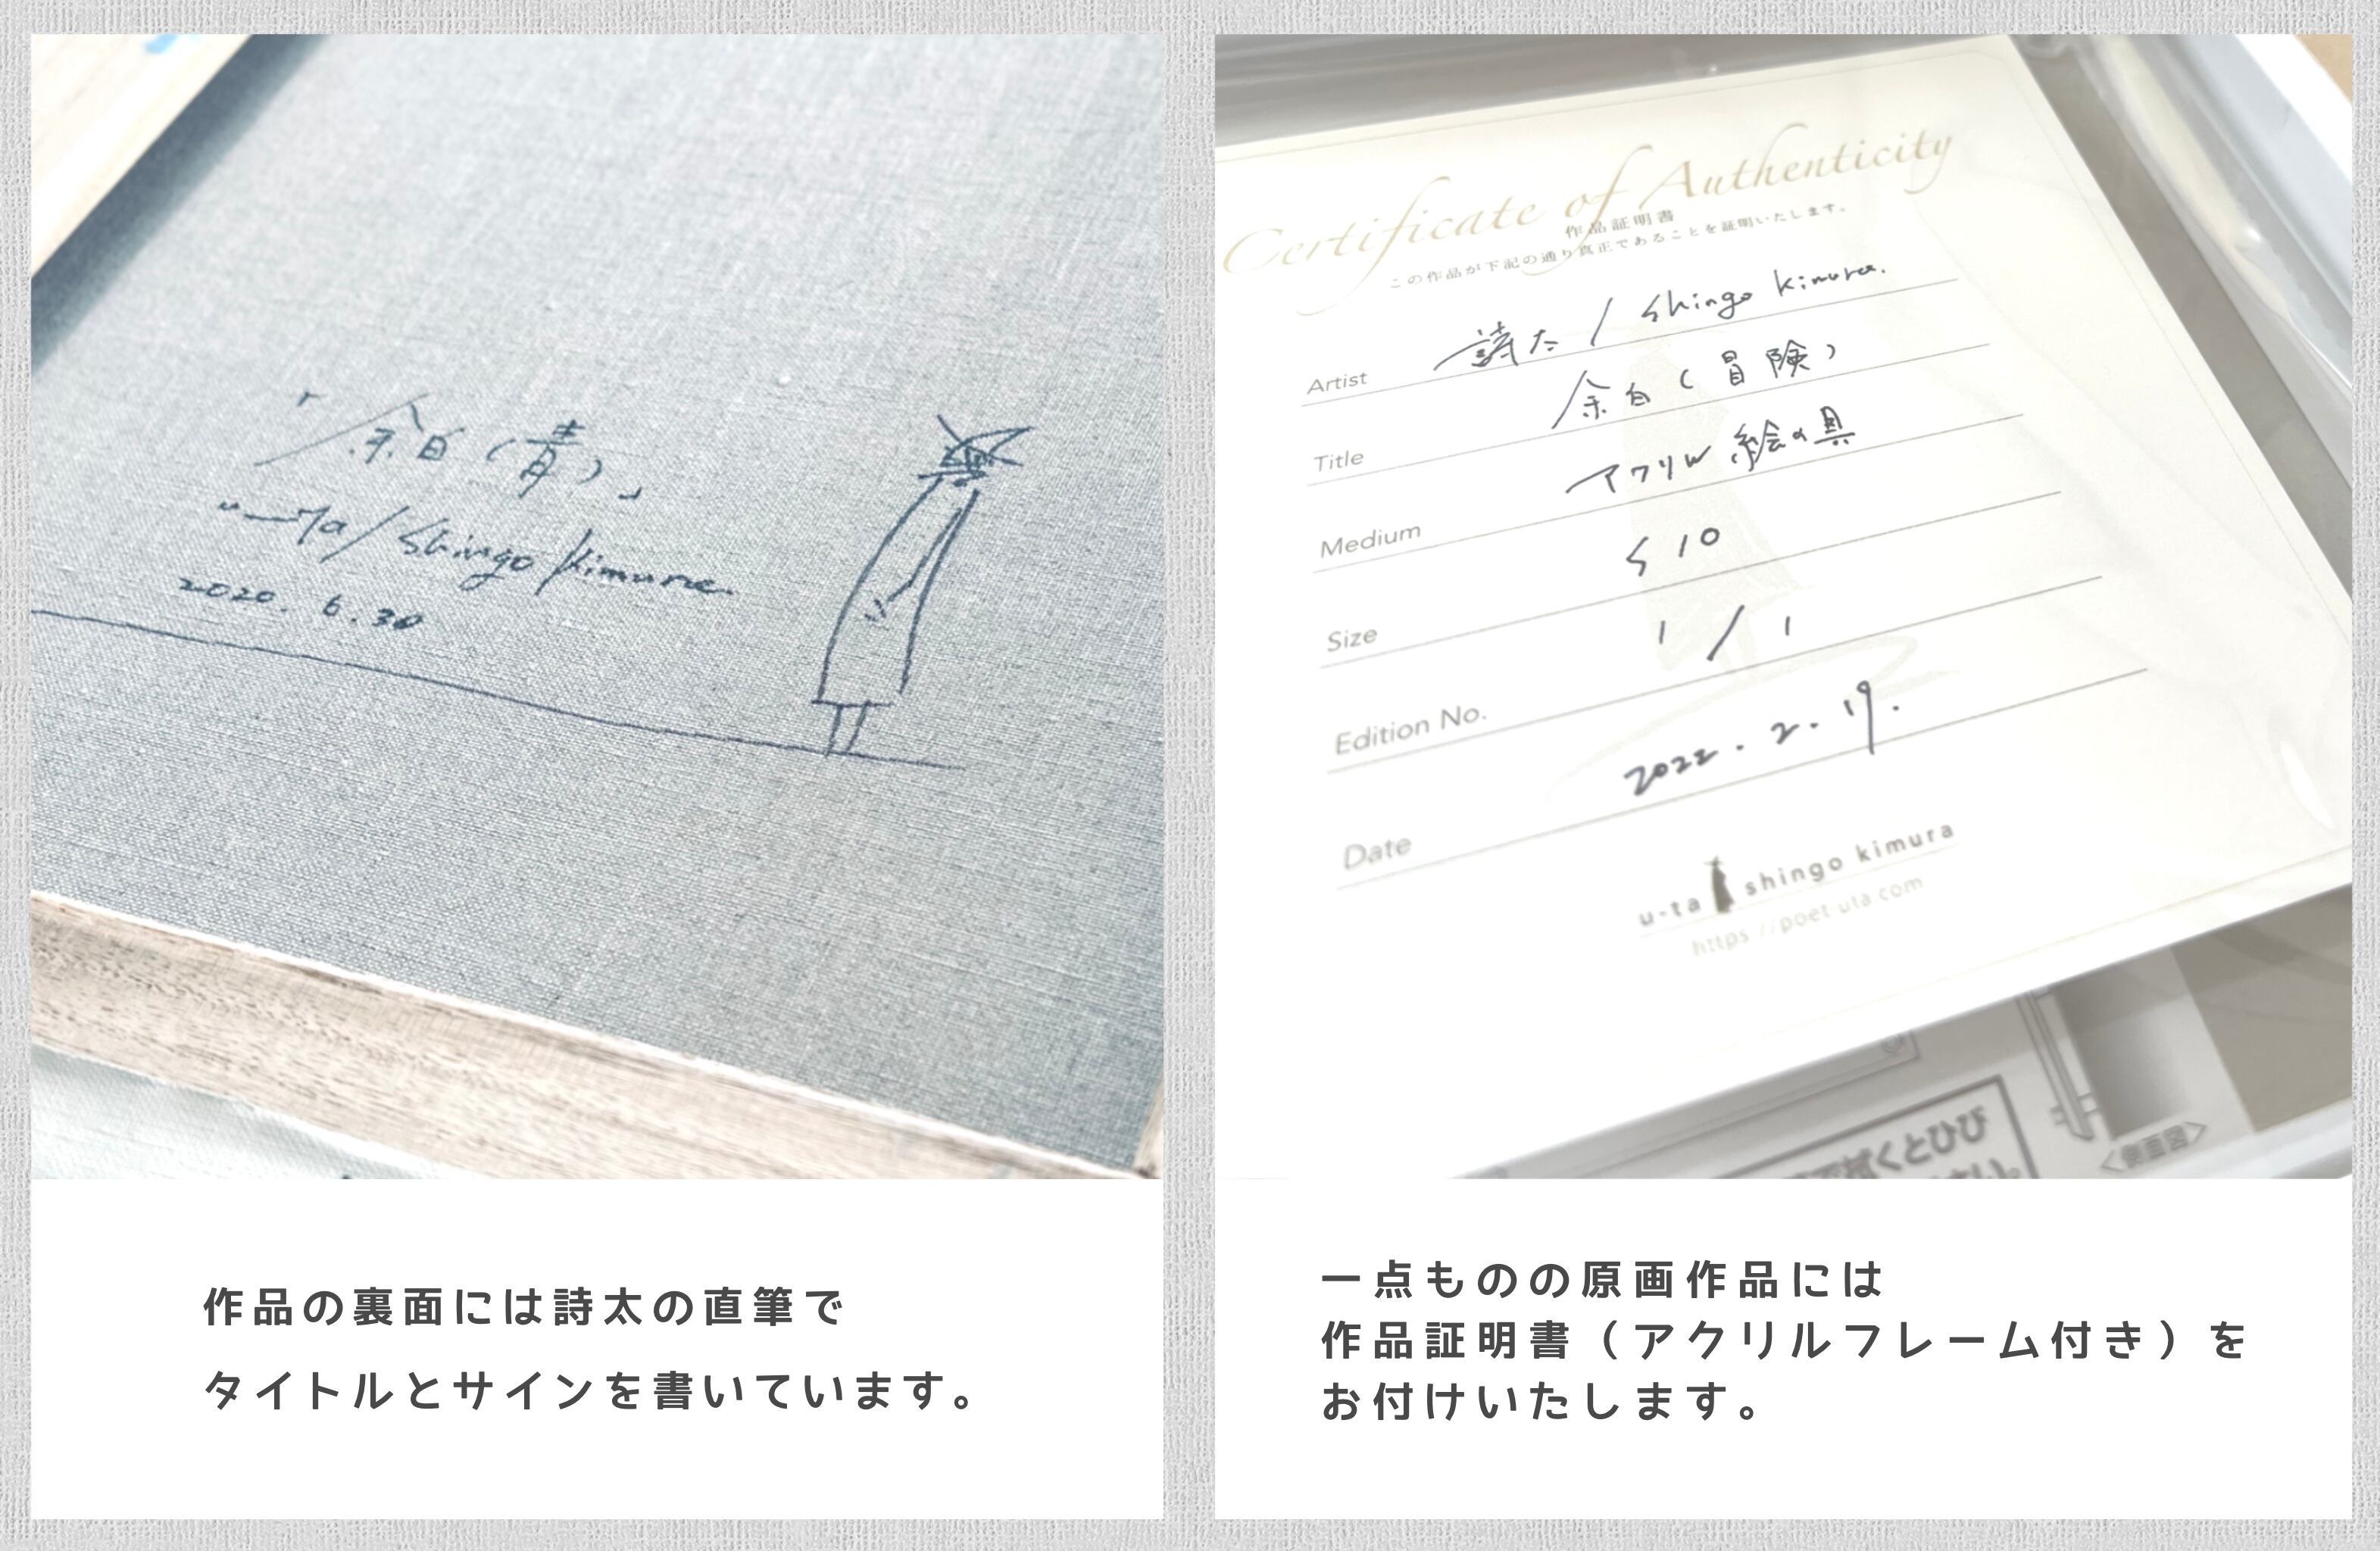 「余白（青）」
u-ta / Shingo Kimura
2020. 6. 30
作品の裏面には詩太の直筆で
タイトルとサインを書いています。
Certificate of Authenticity
作品証明書
この作品が下記の通り真正であることを証明いたします。
Artist 詩太 / Shingo Kimura.
Title 余白（冒険）
Medium アクリル絵の具
Size S10
Edition No. 1 / 1
Date 2022. 2. 19.
u-ta shingo kimura
https://poet-uta.com
拭くとひび
さい。
＜側面図＞
一点ものの原画作品には
作品証明書（アクリルフレーム付き）を
お付けいたします。